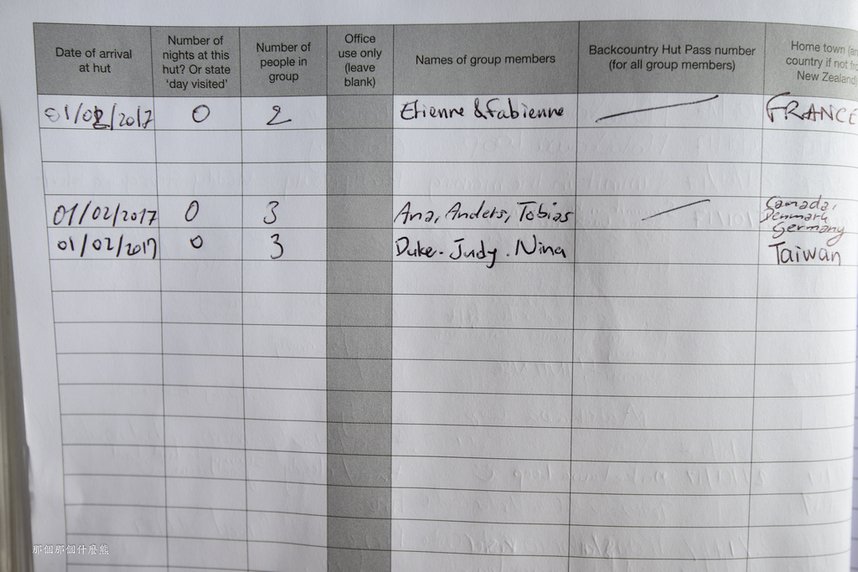 Date of arrival
at hut
Number of
nights at this
hut? Or state
'day visited'
Number of
people in
group
Office
use only
(leave
blank)
Names of group members
Backcountry Hut Pass number
(for all group members)
Home town (an
country if not fro
New Zealand
01/02/2017 0 2 Etienne & Fabienne FRANCE
01/02/2017 0 3 Ana, Anders, Tobias Canada,
Denmark
Germany
01/02/2017 0 3 Duke. Judy. Nina Taiwan
那個那個什麼熊